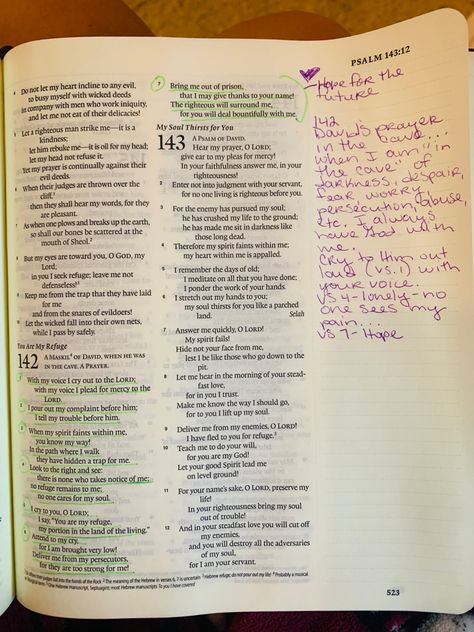 PSALM 143:12
4 Do not let my heart incline to any evil,
to busy myself with wicked deeds
in company with men who work iniquity,
and let me not eat of their delicacies!
5 Let a righteous man strike me—it is a
kindness;
let him rebuke me—it is oil for my head;
let my head not refuse it.
Yet my prayer is continually against their
evil deeds.
6 When their judges are thrown over the
cliff,
then they shall hear my words, for they
are pleasant.
7 As when one plows and breaks up the earth,
so shall our bones be scattered at the
mouth of Sheol.
8 But my eyes are toward you, O GOD, my
Lord;
in you I seek refuge; leave me not
defenseless!
9 Keep me from the trap that they have laid
for me
and from the snares of evildoers!
10 Let the wicked fall into their own nets,
while I pass by safely.
You Are My Refuge
142 A MASKIL OF DAVID, WHEN HE WAS
IN THE CAVE. A PRAYER.
1 With my voice I cry out to the LORD;
with my voice I plead for mercy to the
LORD.
2 I pour out my complaint before him;
I tell my trouble before him.
3 When my spirit faints within me,
you know my way!
In the path where I walk
they have hidden a trap for me.
4 Look to the right and see:
there is none who takes notice of me;
no refuge remains to me;
no one cares for my soul.
5 I cry to you, O LORD;
I say, "You are my refuge,
my portion in the land of the living."
6 Attend to my cry,
for I am brought very low!
Deliver me from my persecutors,
for they are too strong for me!
7 Bring me out of prison,
that I may give thanks to your name!
The righteous will surround me,
for you will deal bountifully with me.
My Soul Thirsts for You
143 A PSALM OF DAVID.
Hear my prayer, O LORD;
give ear to my pleas for mercy!
In your faithfulness answer me, in your
righteousness!
2 Enter not into judgment with your servant,
for no one living is righteous before you.
3 For the enemy has pursued my soul;
he has crushed my life to the ground;
he has made me sit in darkness like
those long dead.
4 Therefore my spirit faints within me;
my heart within me is appalled.
5 I remember the days of old;
I meditate on all that you have done;
I ponder the work of your hands.
6 I stretch out my hands to you;
my soul thirsts for you like a parched
land. Selah
7 Answer me quickly, O LORD!
My spirit fails!
Hide not your face from me,
lest I be like those who go down to the
pit.
8 Let me hear in the morning of your stead-
fast love,
for in you I trust.
Make me know the way I should go,
for to you I lift up my soul.
9 Deliver me from my enemies, O LORD!
I have fled to you for refuge.
10 Teach me to do your will,
for you are my God!
Let your good Spirit lead me
on level ground!
11 For your name's sake, O LORD, preserve my
life!
In your righteousness bring my soul
out of trouble!
12 And in your steadfast love you will cut off
my enemies,
and you will destroy all the adversaries
of my soul,
for I am your servant.
Hope for the
future
142
David's prayer
in the cave...
when I am "in
the cave" of
darkness, despair,
fear, worry,
persecution, abuse,
etc. I always
have God with
me.
Cry to Him out
loud (vs. 1) with
your voice.
vs 4-lonely-no
one sees my
pain...
vs 7- Hope
523